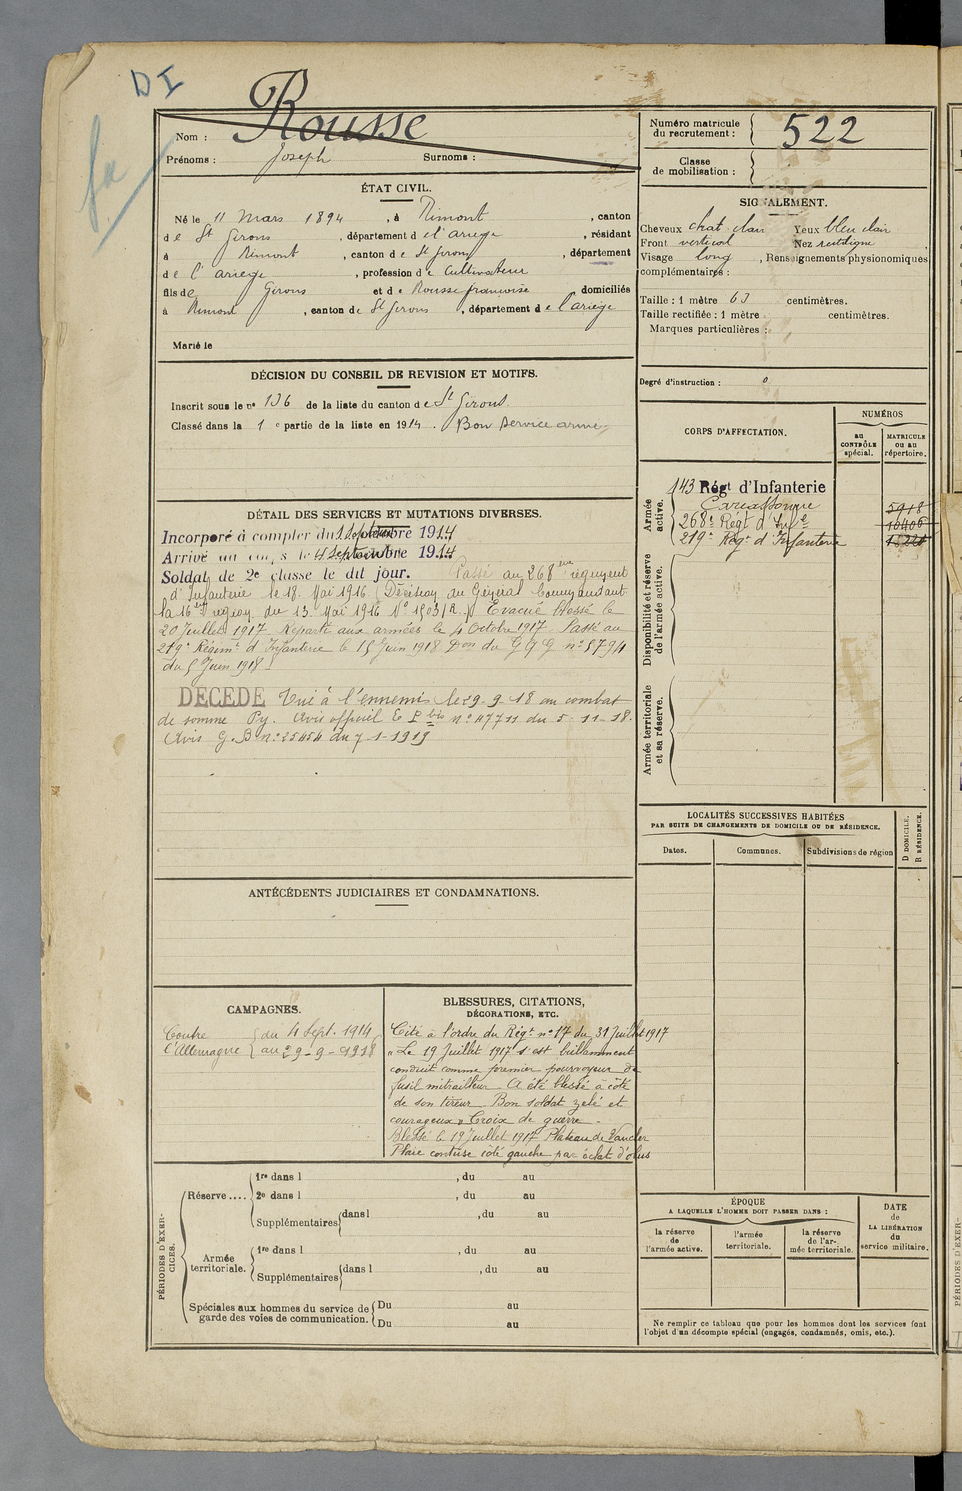 D I
fa
Rousse
Nom :
Prénoms : Joseph Surnoms :
Numéro matricule
du recrutement : 522
Classe
de mobilisation :
ÉTAT CIVIL.
Né le 11 Mars 1894, à Rimont, canton
de St Girons, département d e l'ariege, résidant
à Rimont, canton de St Girons, département
de l'ariège, profession de Cultivateur
fils de Girons et de Rousse françoise domiciliés
à Rimont, canton de St Girons, département de l'ariège
Marié le
SIGNALEMENT.
Cheveux chat. clair Yeux bleu clair
Front vertical Nez rectiligne
Visage long, Renseignements physionomiques
complémentaires :
Taille : 1 mètre 63 centimètres.
Taille rectifiée : 1 mètre centimètres.
Marques particulières :
Degré d'instruction : 0
DÉCISION DU CONSEIL DE REVISION ET MOTIFS.
Inscrit sous le n° 136 de la liste du canton de St Girons.
Classé dans la 1 e partie de la liste en 1914. Bon Service armé
CORPS D'AFFECTATION.
NUMÉROS
au
CONTRÔLE
spécial.
MATRICULE
ou au
répertoire.
Armée
active.
143 Régt d'Infanterie
Carcassonne 5918
268e Régt d'Infie 10406
219e Régt d'Infanterie
Disponibilité et réserve
de l'armée active.
Armée territoriale
et sa réserve.
DÉTAIL DES SERVICES ET MUTATIONS DIVERSES.
Incorporé à compter du 1 Septembre 1914
Arrivé au corps le 4 Septembre 1914
Soldat de 2e classe le dit jour. Passé au 268eme régiment
d'Infanterie le 18 Mai 1916 (Décision du Général Commandant
la 16eme région du 13 Mai 1916 N° 1503/R.) Evacué blessé le
20 Juillet 1917. Reparti aux armées le 4 Octobre 1917. Passé au
219e Régimt d'Infanterie le 15 Juin 1918 Don du G Q G n° 5794
du 5 Juin 1918.
DÉCÉDÉ Tué à l'ennemi le 29-9-18 au combat
de Somme Py. Avis officiel E P bis n° 47711 du 5-11-18.
Avis G.B n° 25454 du 7-1-1919
LOCALITÉS SUCCESSIVES HABITÉES
PAR SUITE DE CHANGEMENTS DE DOMICILE OU DE RÉSIDENCE.
Dates. Communes. Subdivisions de région
D DOMICILE.
R RÉSIDENCE.
ANTÉCÉDENTS JUDICIAIRES ET CONDAMNATIONS.
CAMPAGNES.
Contre du 4 Sept. 1914
l'Allemagne au 29-9-1918
BLESSURES, CITATIONS,
DÉCORATIONS, ETC.
Cité à l'ordre du Régt n° 17 du 31 Juillet 1917
"Le 19 Juillet 1917 s'est brillamment
conduit comme premier pourvoyeur de
fusil mitrailleur. A été blessé à côté
de son tireur. Bon soldat zélé et
courageux" Croix de guerre.
Blessé le 19 Juillet 1917 Plateau de Vaucler
Plaie contuse côté gauche par éclat d'obus
PÉRIODES D'EXER-
CICES.
Réserve ....
1re dans l , du au
2e dans l , du au
Supplémentaires dans l , du au
Armée
territoriale.
1re dans l , du au
Supplémentaires dans l , du au
Spéciales aux hommes du service de
garde des voies de communication.
Du au
Du au
ÉPOQUE
A LAQUELLE L'HOMME DOIT PASSER DANS :
la réserve
de
l'armée active.
l'armée
territoriale.
la réserve
de l'ar-
mée territoriale.
DATE
de
LA LIBÉRATION
du
service militaire.
Ne remplir ce tableau que pour les hommes dont les services font
l'objet d'un décompte spécial (engagés, condamnés, omis, etc.).
PÉRIODES D'EXER-